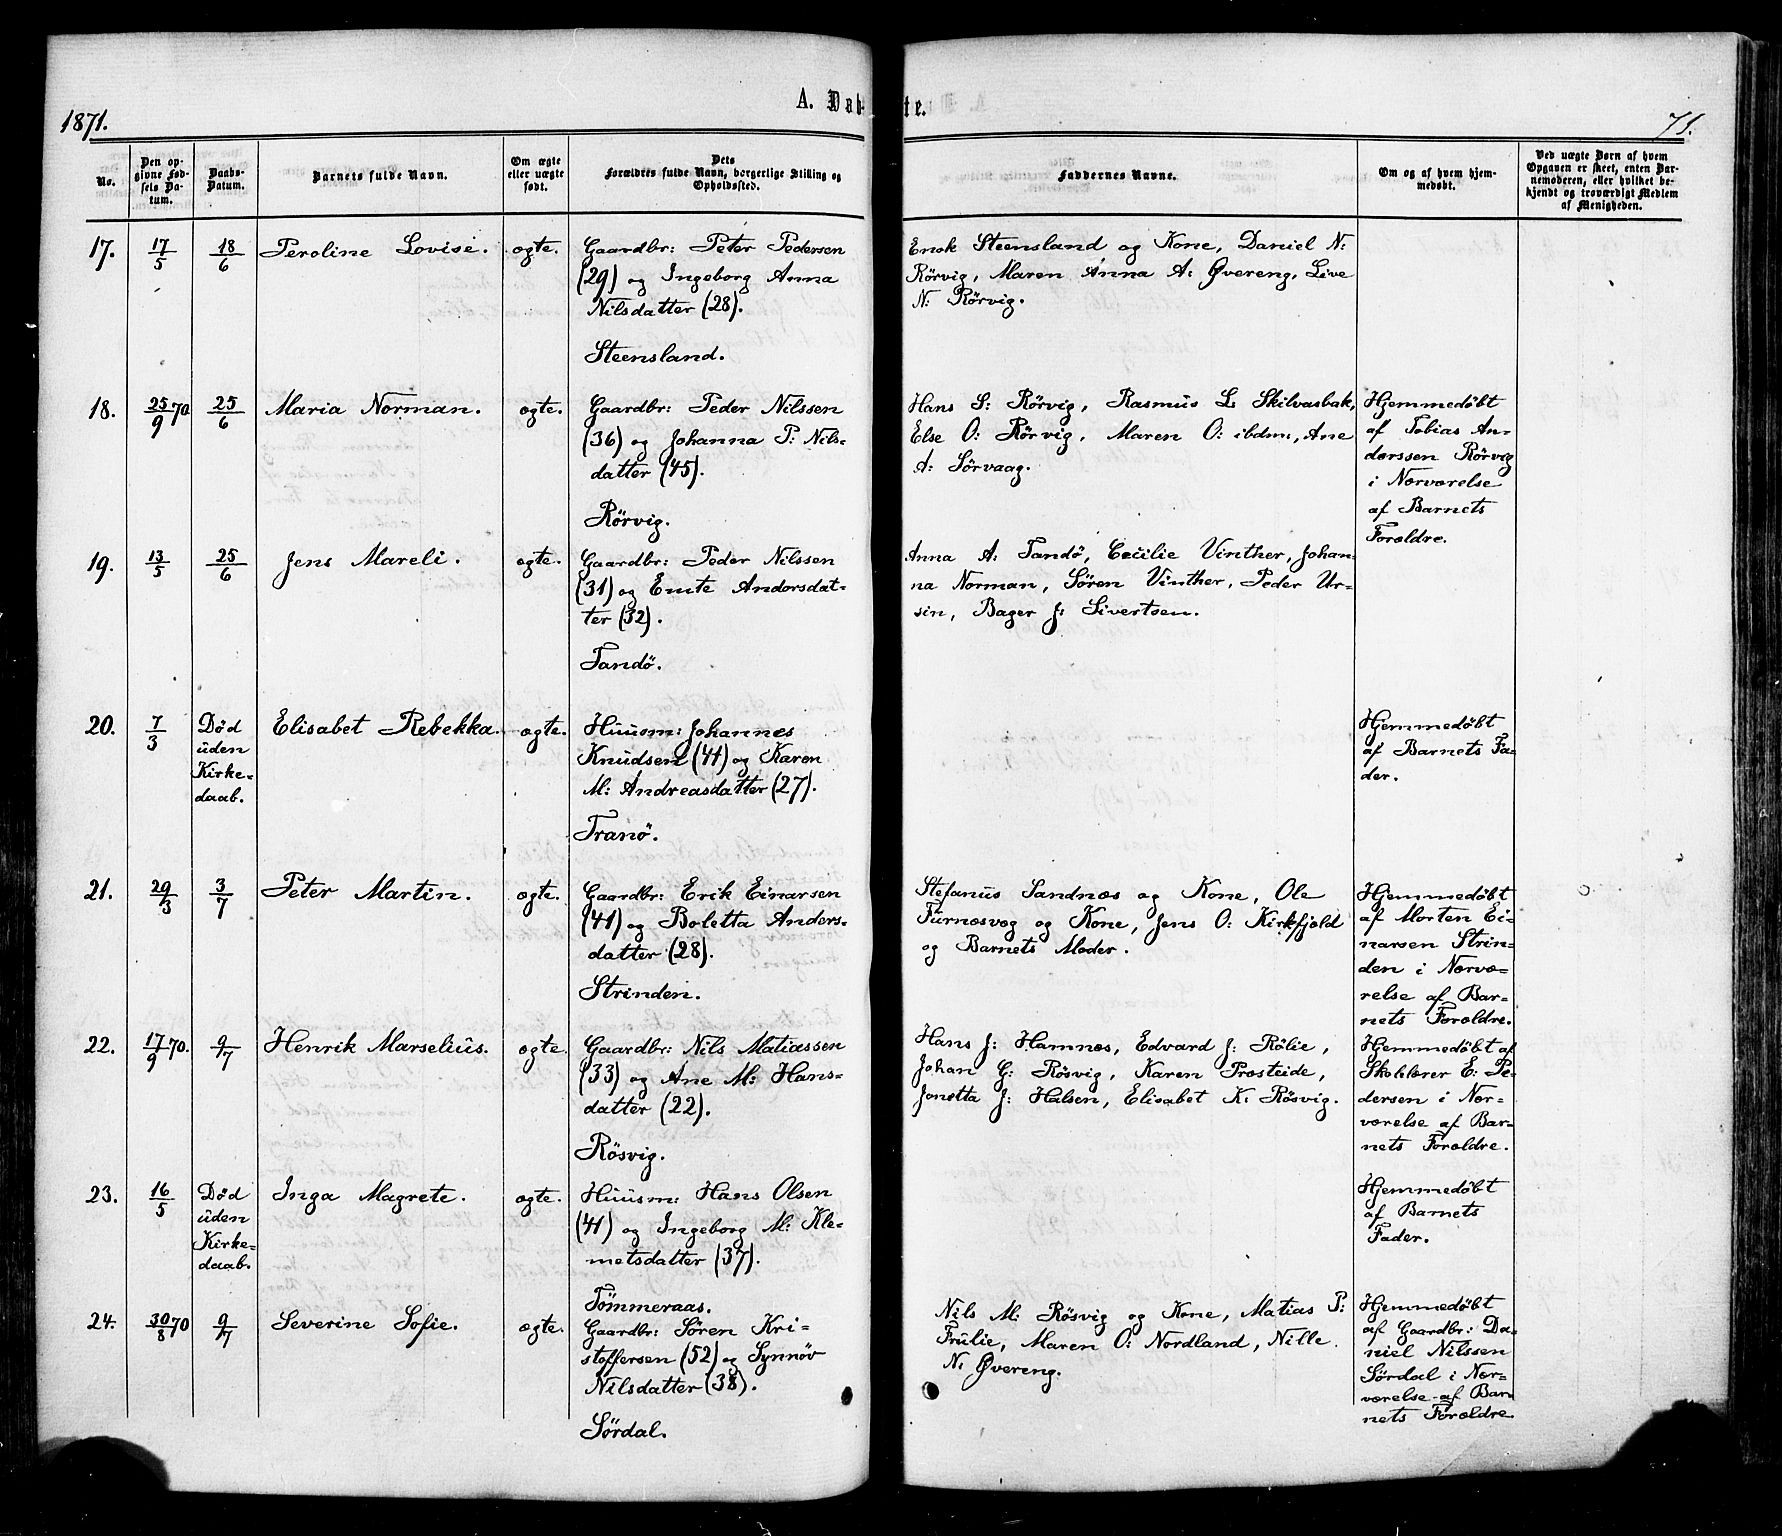 1871.
A. Døbte.
71.
No.
Den opgivne Fødsels Datum.
Daabs-Datum.
Barnets fulde Navn.
Om ægte eller uægte født.
Forældres fulde Navn, dets borgerlige Stilling og Opholdssted.
Faddernes Navne.
Om og af hvem hjemmedøbt.
Ved uægte Børn af hvem Opgaven er skeet, enten Barnemoderen, eller hvilket bekjendt og troværdigt Medlem af Menigheden.
17. 17/5 18/6 Peroline Lovise. ægte.
Gaardbr: Peter Pedersen
(29) og Ingeborg Anna
Nilsdatter (28).
Steensland.
Enok Steensland og Kone, Daniel N:
Rörvig, Maren Anna A: Øvereng, Live
N: Rörvig.
18. 25/9 70 25/6 Maria Norman. ægte.
Gaardbr: Peder Nilssen
(36) og Johanna P: Nils-
datter (45).
Rörvig.
Hans S: Rörvig, Rasmus L. Skilvasbak,
Else O: Rörvig, Maren O: ibdm:, Ane
A: Sörvaag.
Hjemmedøbt
af Tobias An-
derssen Rörvig
i Nærværelse
af Barnets
Forældre.
19. 13/5 25/6 Jens Mareli. ægte.
Gaardbr: Peder Nilssen
(31) og Emte Andersdat-
ter (32).
Tandö.
Anna A: Tandö, Cecilie Vinther, Johan-
na Norman, Sören Vinther, Peder Ur-
sin, Bager J: Sivertsen.
20. 7/3 Død
uden
Kirke-
daab.
Elisabet Rebekka. ægte.
Huusm: Johannes
Knudsen (41) og Karen
M: Andreasdatter (27).
Tranö.
Hjemmedøbt
af Barnets Fa-
der.
21. 29/3 3/7 Peter Martin. ægte.
Gaardbr: Erik Einarsen
(41) og Boletta Anders-
datter (28).
Strinden.
Stefanus Sandnæs og Kone, Ole
Furnæsvæg og Kone, Jens O: Kirkfjæld
og Barnets Moder.
Hjemmedøbt
af Morten Ei-
narsen Strin-
den i Nærvæ-
relse af Bar-
nets Forældre.
22. 17/9 70. 9/7 Henrik Marselius. ægte.
Gaardbr: Nils Matiassen
(33) og Ane M: Hans-
datter (22).
Rösvig.
Hans J: Hamnæs, Edvard J: Rölie,
Johan G: Rösvig, Karen Præsteide,
Jonetta J: Halsen, Elisabet K: Rösvig.
Hjemmedøbt af
Skolelærer E: Pe-
dersen i Nær-
værelse af Bar-
nets Forældre.
23. 16/5 Død
uden
Kirke-
daab.
Inga Magrete. ægte.
Huusm: Hans Olsen
(41) og Ingeborg M: Kle-
metsdatter (37).
Tömmeraas.
Hjemmedøbt
af Barnets
Fader.
24. 30/8 70 9/7 Severine Sofie. ægte.
Gaardbr: Sören Kri-
stoffersen (52) og Synnöv
Nilsdatter (38).
Sördal.
Nils M: Rösvig og Kone, Matias P:
Frulie, Maren O: Nordland, Nille
N: Øvereng.
Hjemmedøbt
af Gaardbr: Da-
niel Nilssen
Sördal i Nær-
værelse af Bar-
nets Forældre.